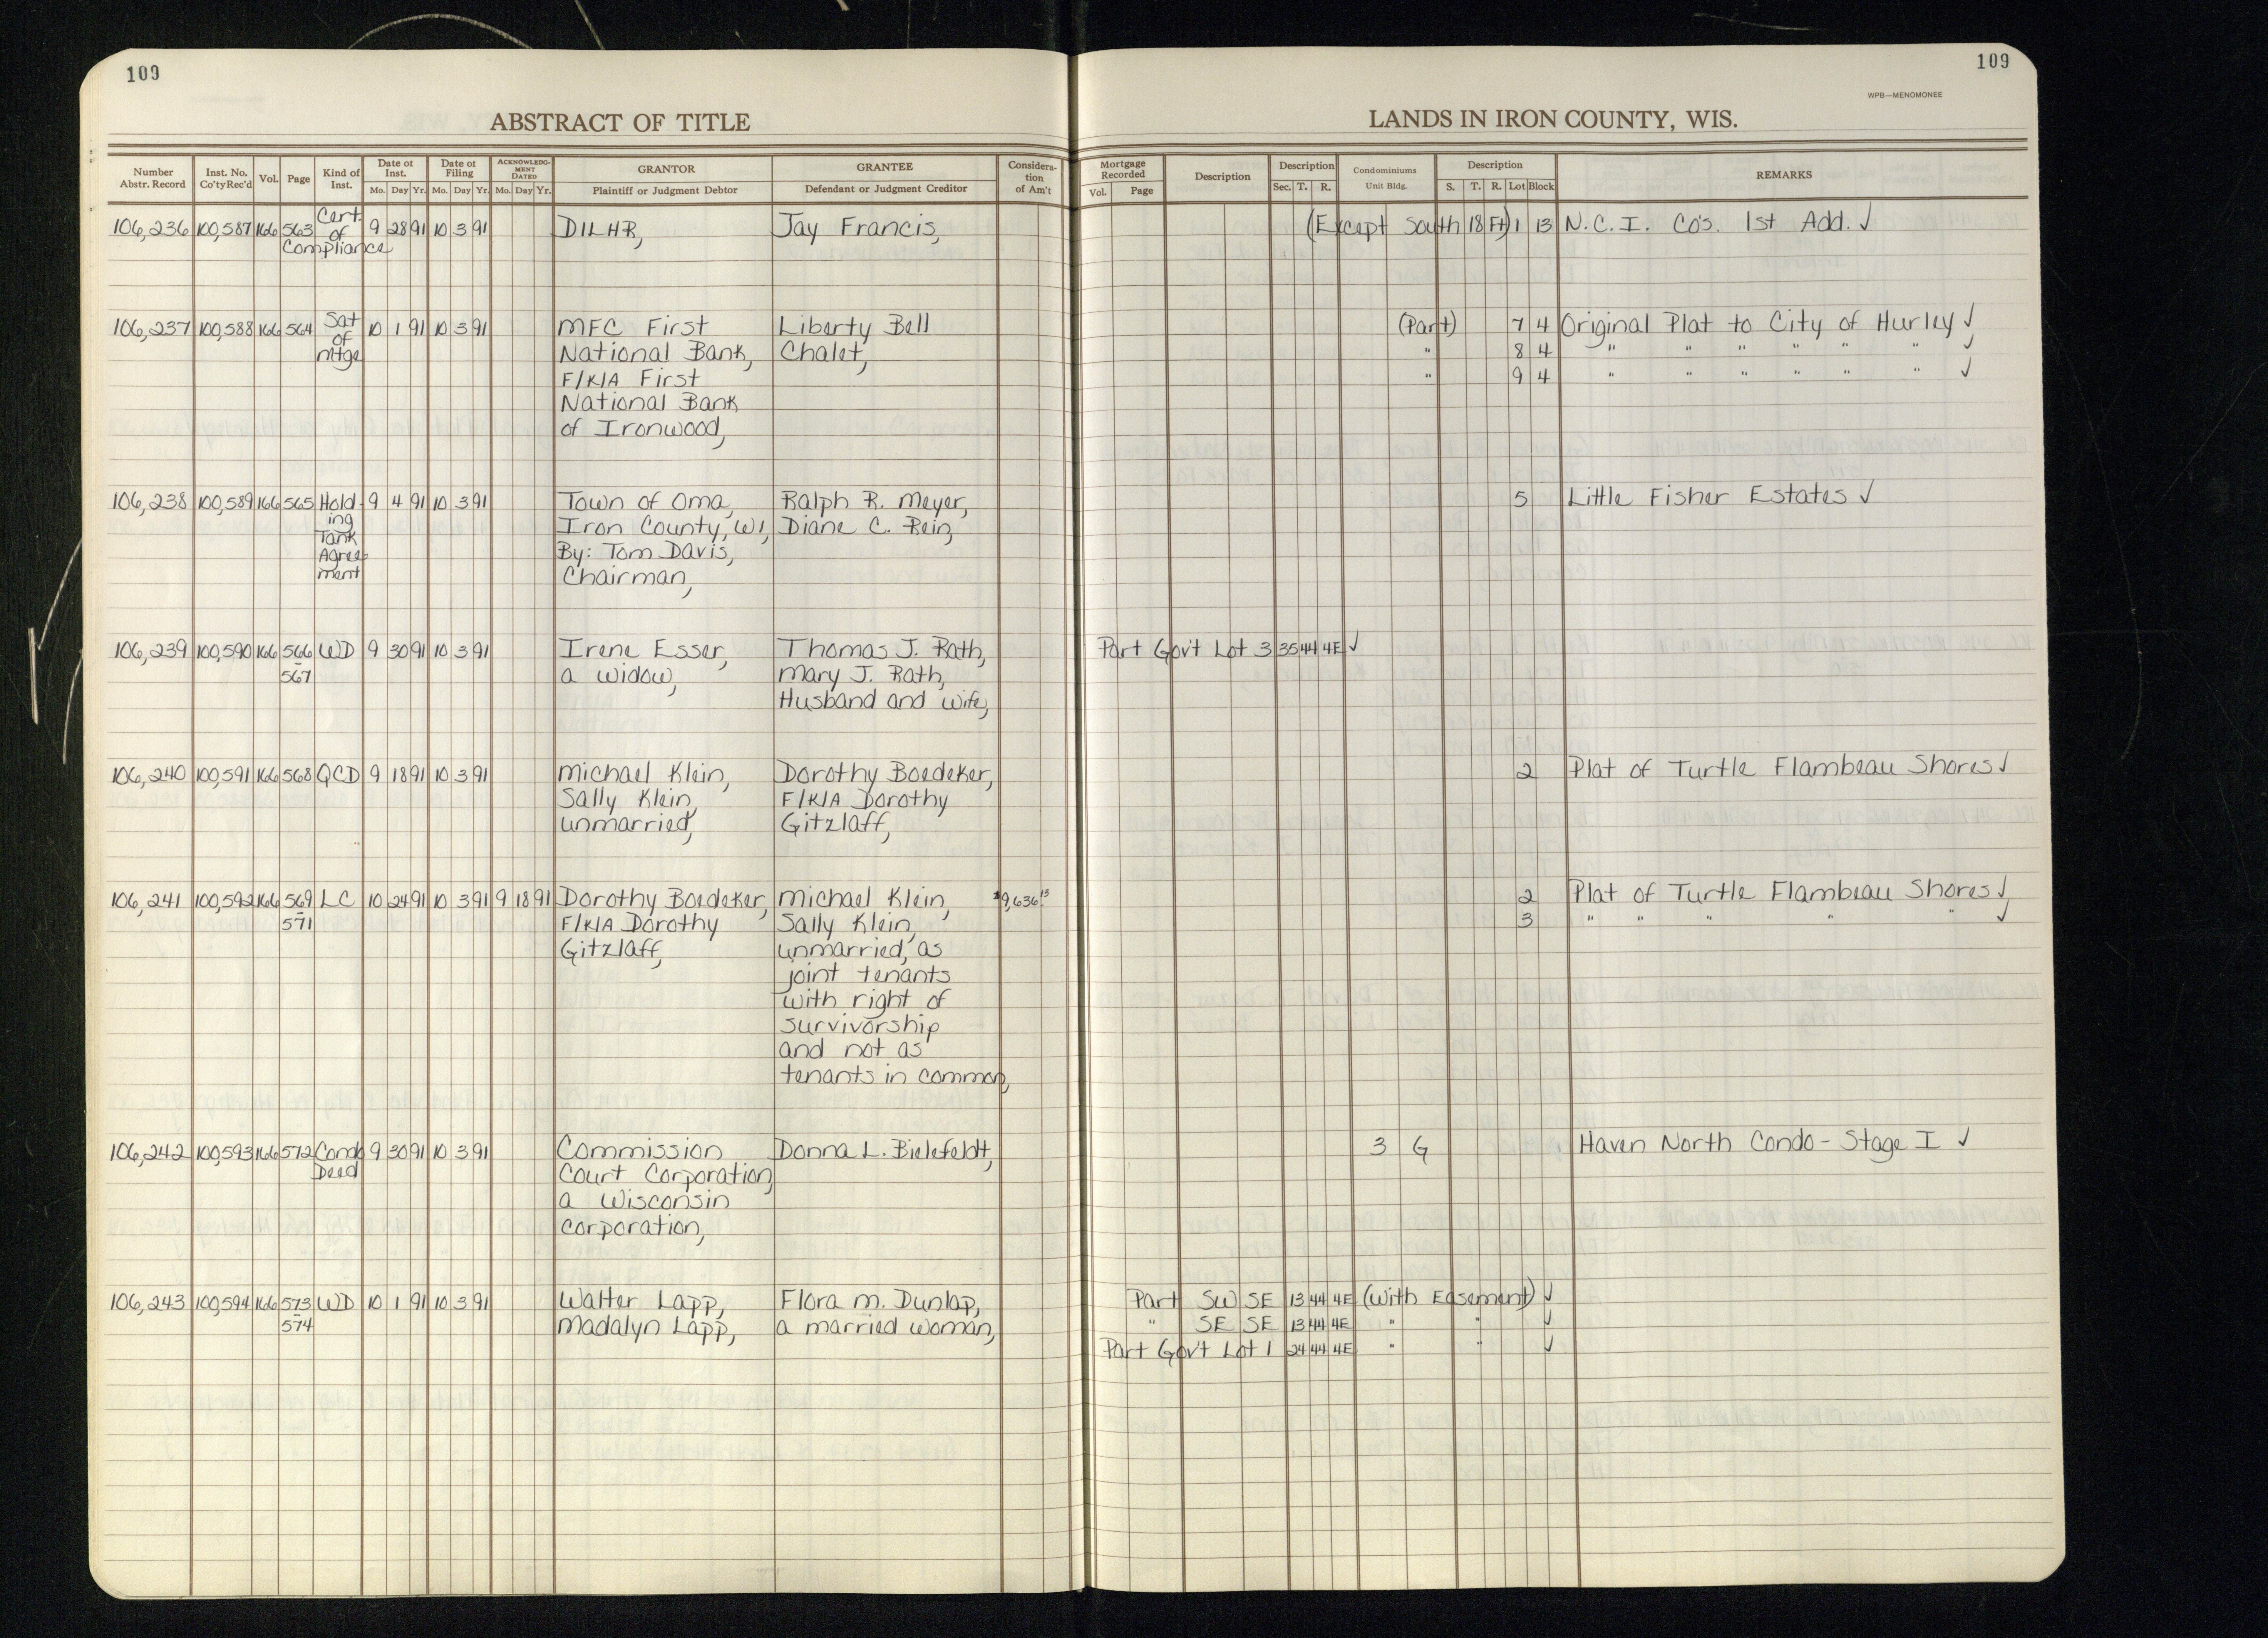 109
109
WPB—MENOMONEE
ABSTRACT OF TITLE
LANDS IN IRON COUNTY, WIS.
Number Abstr. Record | Inst. No. Co'ty Rec'd | Vol. | Page | Kind of Inst. | Date of Inst. Mo. Day Yr. | Date of Filing Mo. Day Yr. | ACKNOWLEDGMENT DATED Mo. Day Yr. | GRANTOR Plaintiff or Judgment Debtor | GRANTEE Defendant or Judgment Creditor | Consideration of Am't | Mortgage Recorded Vol. Page | Description | Description Sec. T. R. | Condominiums Unit Bldg. | Description S. T. R. Lot Block | REMARKS
106,236 100,587 166 563 Cert. of Compliance 9 28 91 10 3 91 DILHR, Jay Francis, (Except South 18 Ft) 1 13 N.C.I. Co's. 1st Add. ✓
106,237 100,588 166 564 Sat of Mtge 10 1 91 10 3 91 MFC First Liberty Bell (Part) 7 4 Original Plat to City of Hurley ✓
National Bank, Chalet, " 8 4 " " " " " " ✓
F/K/A First " 9 4 " " " " " " ✓
National Bank
of Ironwood,
106,238 100,589 166 565 Holding Tank Agreement 9 4 91 10 3 91 Town of Oma, Ralph R. Meyer, 5 Little Fisher Estates ✓
Iron County, WI, Diane C. Rein,
By: Tom Davis,
Chairman,
106,239 100,590 166 566 - 567 WD 9 30 91 10 3 91 Irene Esser, Thomas J. Rath, Part Gov't Lot 3 35 44 4E ✓
a widow, Mary J. Rath,
Husband and wife,
106,240 100,591 166 568 QCD 9 18 91 10 3 91 Michael Klein, Dorothy Boedeker, 2 Plat of Turtle Flambeau Shores ✓
Sally Klein, F/K/A Dorothy
unmarried, Gitzlaff,
106,241 100,592 166 569 - 571 LC 10 24 91 10 3 91 9 18 91 Dorothy Boedeker, Michael Klein, $9,636.13 2 Plat of Turtle Flambeau Shores ✓
F/K/A Dorothy Sally Klein, 3 " " " " " ✓
Gitzlaff, unmarried, as
joint tenants
with right of
survivorship
and not as
tenants in common,
106,242 100,593 166 572 Condo Deed 9 30 91 10 3 91 Commission Donna L. Bielefeldt, 3 G Haven North Condo - Stage I ✓
Court Corporation,
a Wisconsin
corporation,
106,243 100,594 166 573 - 574 WD 10 1 91 10 3 91 Walter Lapp, Flora M. Dunlap, Part SW SE 13 44 4E (With Easement) ✓
Madalyn Lapp, a married woman, " SE SE 13 44 4E " " ✓
Part Gov't Lot 1 24 44 4E " " ✓